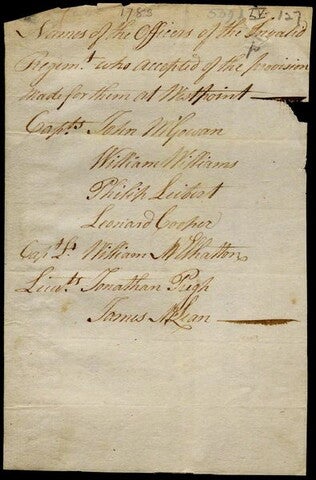 1783 LV. 127
Names of the Officers of the Invalid
Regimt. who accepted of the provision
made for them at Westpoint
Capts. John McGowan
William Williams
Philip Leibert
Leonard Cooper
Capt Lt. William McElhatton
Lieuts. Jonathan Pugh
James McLean